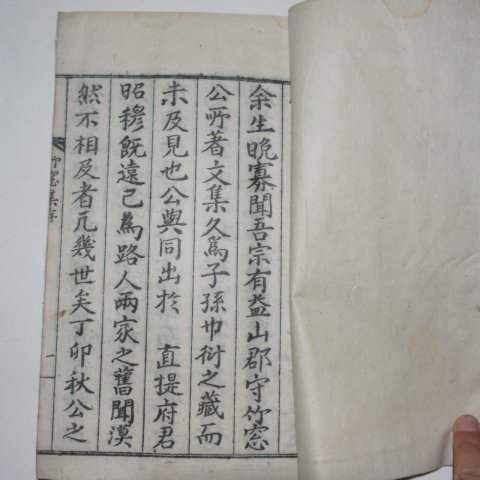 余生晩寡聞吾宗有益山郡守竹窓
公所著文集久爲子孫巾衍之藏而
未及見也公與同出於 直提府君
昭穆旣遠已爲路人兩家之舊聞漠
然不相及者凡幾世矣丁卯秋公之
竹窓集序
一